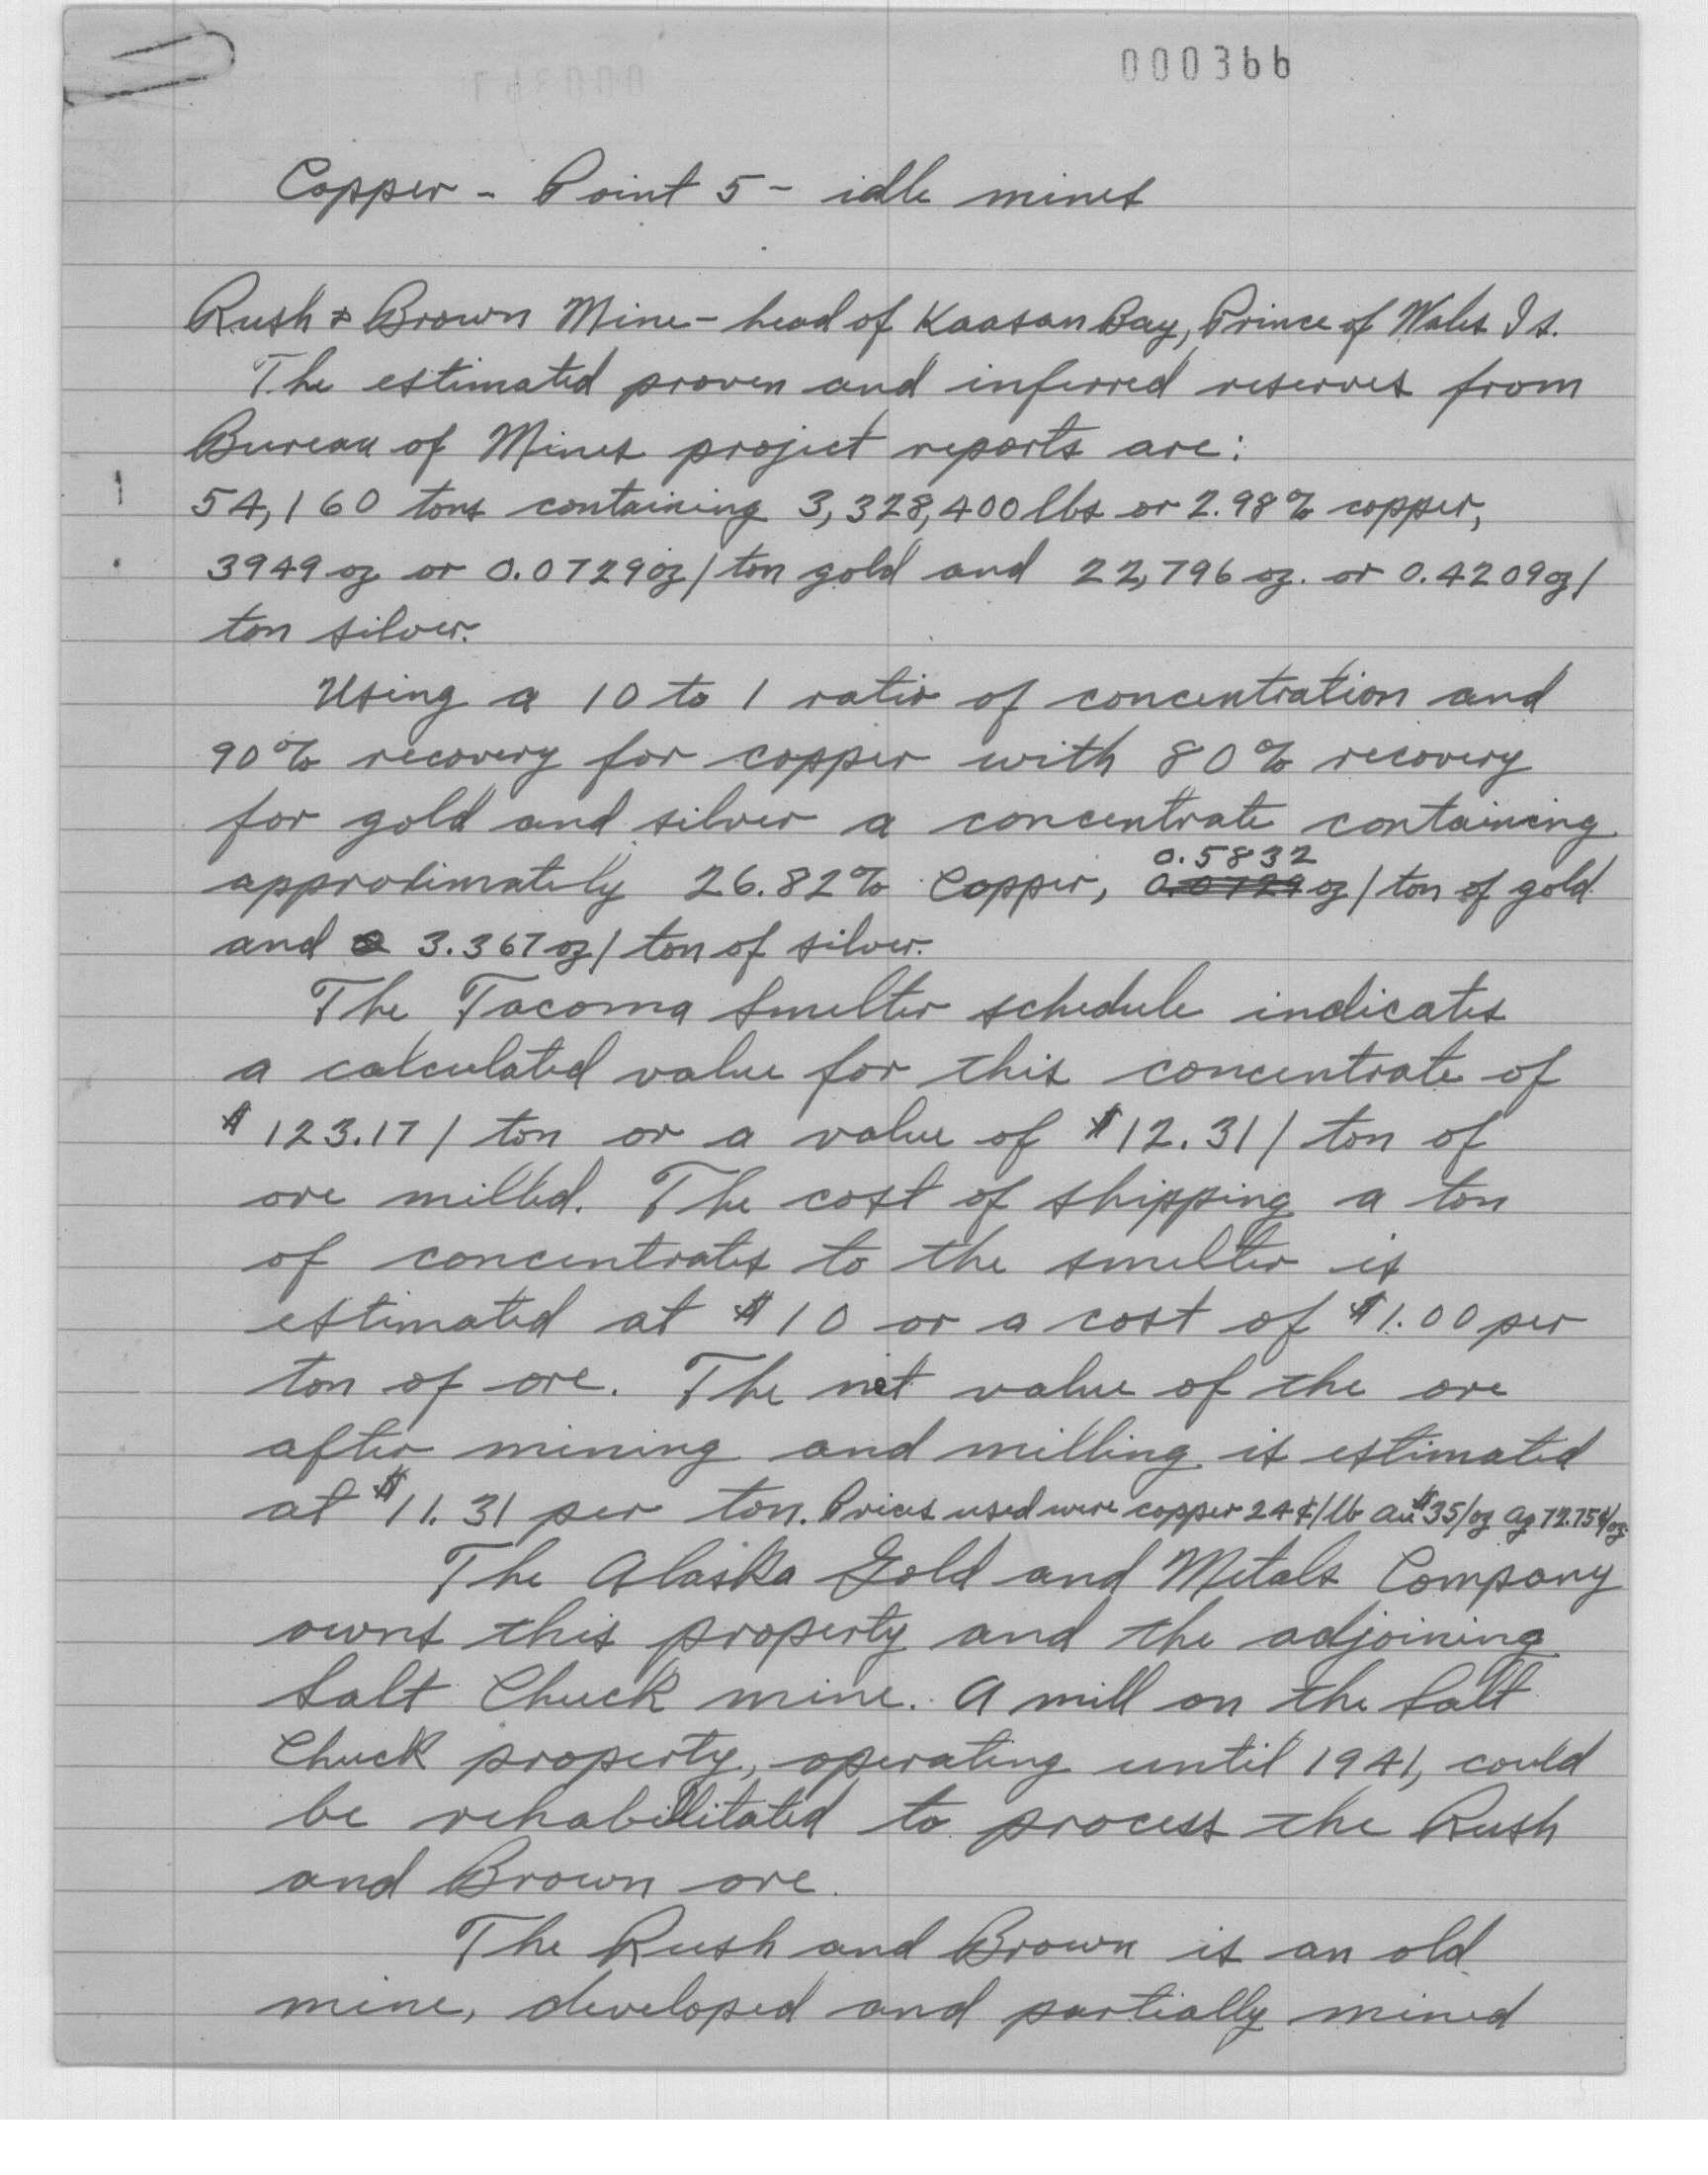 000366
Copper - Point 5 - idle mines
Rush & Brown Mine - head of Kaasan Bay, Prince of Wales Is.
The estimated proven and inferred reserves from
Bureau of Mines project reports are:
54,160 tons containing 3,328,400 lbs or 2.98% copper,
3949 oz or 0.0729 oz/ton gold and 22,796 oz. or 0.4209 oz/
ton silver.
Using a 10 to 1 ratio of concentration and
90% recovery for copper with 80% recovery
for gold and silver a concentrate containing
0.5832
approximately 26.82% Copper, 0.0729 oz/ton of gold
and 3.367 oz/ton of silver.
The Tacoma Smelter schedule indicates
a calculated value for this concentrate of
$123.17/ton or a value of $12.31/ton of
ore milled. The cost of shipping a ton
of concentrates to the smelter is
estimated at $10 or a cost of $1.00 per
ton of ore. The net value of the ore
after mining and milling is estimated
at $11.31 per ton. Prices used were copper 24¢/lb Au $35/oz Ag 72.75¢/oz.
The Alaska Gold and Metals Company
owns this property and the adjoining
Salt Chuck mine. A mill on the Salt
Chuck property, operating until 1941, could
be rehabillitated to process the Rush
and Brown ore.
The Rush and Brown is an old
mine, developed and partially mined